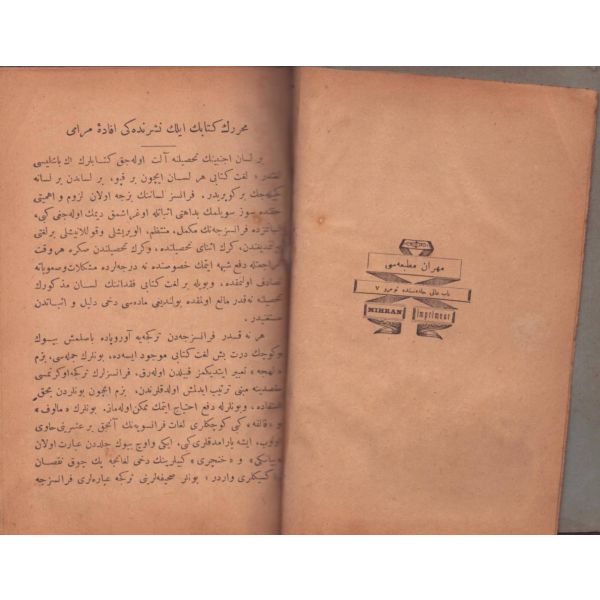 محررك كتابك ايلك نشرنده كى افادۀ مرامى
بر لسان اجنبينك تحصيلنه آلت اوله جق كتابلرك اك باشليسى
لغتدر؛ لغت كتابى هر لسان ايچون بر قپو، بر لساندن بر لسانه
بر كوپريدر. فرانسز لساننك بزجه اولان لزوم و اهميتى
حقنده سوز سويلمك بداهتى اثباته اوغراشمق ديمك اوله جغى كبى،
فرانسزجه نك مكمل، منتظم، الويريشلى و قوللانيشلى بر لغتى
وكرك اثناى تحصيلنده، وكرك تحصيلندن صكره هر وقت
مراجعتله دفع شبهه ايتمك خصوصنده نه درجه لرده مشكلات و صعوباته
تصادف اولنمقده، و بويله بر لغت كتابى فقداننك لسان مذكورك
تحصيلنه نه قدر مانع اولمقده بولنديغى ماده سى دخى دليل و اثباتدن
مستغنيدر.
هر نه قدر فرانسزجه دن تركجه يه آوروپاده باصلمش بيوك
كوچك درت بش لغت كتابى موجود ايسه ده، بونلرك جمله سى، بزم
« لهجه » تعبير ايتديكمز قبيلدن اوله رق، فرانسزلرك تركجه اوكرنمسى
مقصدينه مبنى ترتيب ايدلمش اولدقلرندن، بزم ايچون بونلردن بحق
استفاده، و بونلرله دفع احتياج ايتمك ممكن اوله ماز. بونلرك « مالوف »
و « قالفه » كبى كوچكلرى لغات فرانسويه نك آنجق بر عشرينى حاوى
اولوب، ايشه يارامدقلرى كبى، ايكى و اوچ بيوك جلددن عبارت اولان
« بيانكى » و « خنچرى » كبيلرينك دخى لغاتجه پك چوق نقصان
و اكسيكلرى واردر؛ بونلر صحيفه لرينى تركجه عباره لرى فرانسزجه
مهران مطبعه سى
باب عالى جاده سنده نومرو ٧
MIHRAN imprimeur